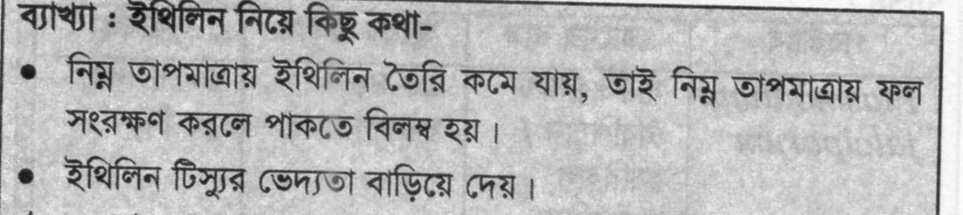 ব্যাখ্যা : ইথিলিন নিয়ে কিছু কথা-
● নিম্ন তাপমাত্রায় ইথিলিন তৈরি কমে যায়, তাই নিম্ন তাপমাত্রায় ফল
সংরক্ষণ করলে পাকতে বিলম্ব হয়।
● ইথিলিন টিস্যুর ভেদ্যতা বাড়িয়ে দেয়।